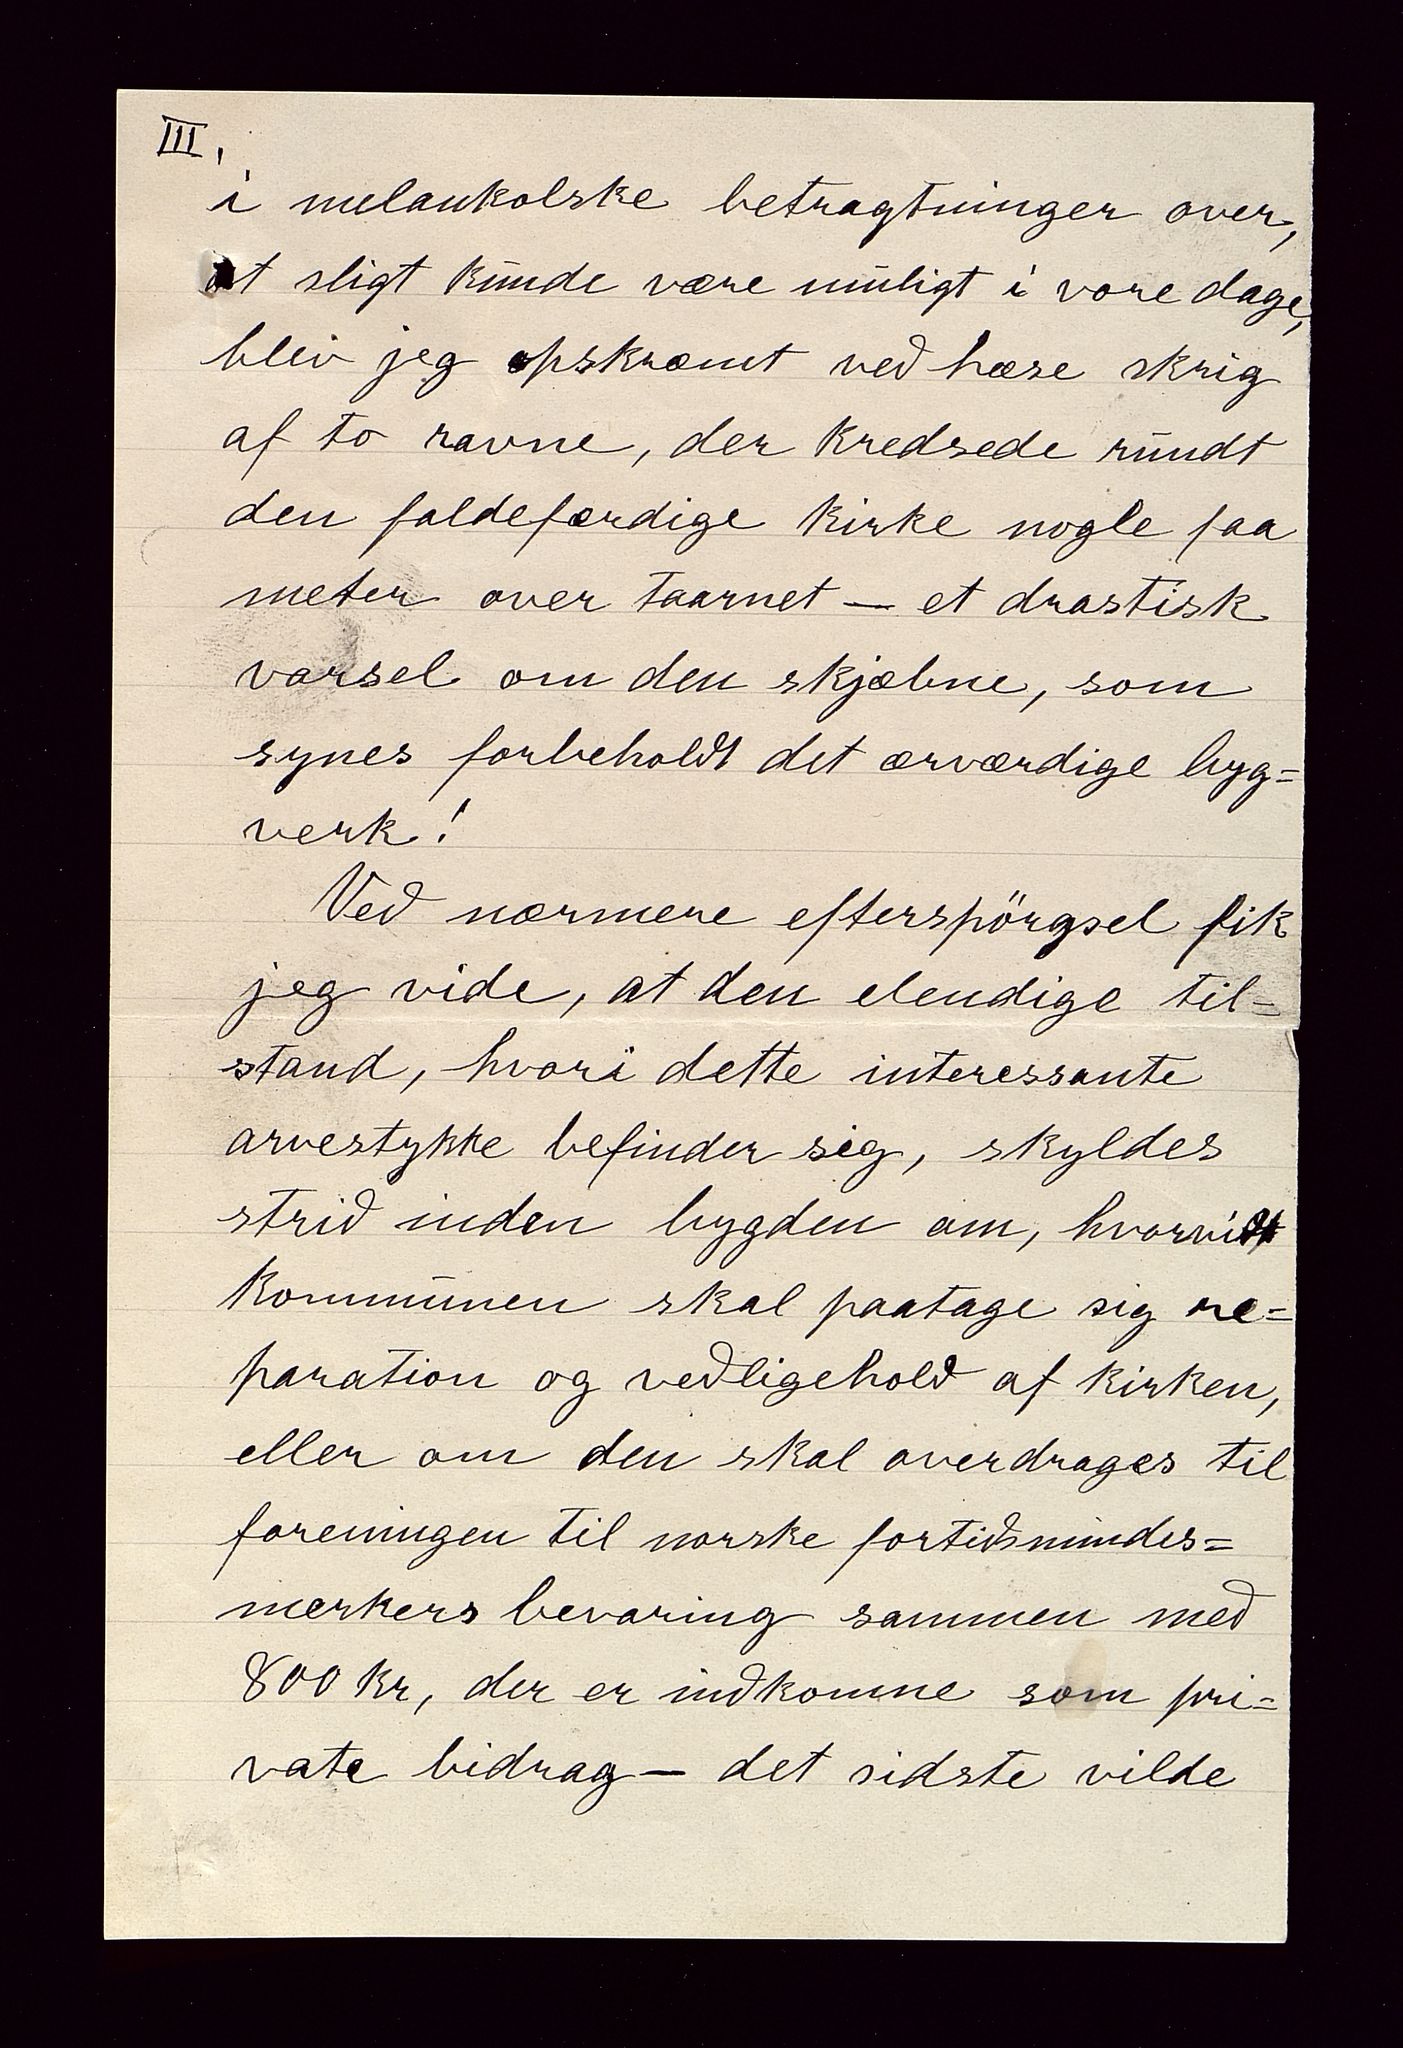 III.
i melankolske betragtninger over,
at sligt kunde være muligt i vore dage,
blev jeg opskræmt ved hæse skrig
af to ravne, der kredsede rundt
den faldefærdige kirke nogle faa
meter over taarnet — et drastisk
varsel om den skjæbne, som
synes forbeholdt det ærværdige byg=
verk!
Ved nærmere efterspörgsel fik
jeg vide, at den elendige til=
stand, hvori dette interessante
arvestykke befinder sig, skyldes
strid inden bygden om, hvorvidt
kommunen skal paatage sig re=
paration og vedligehold af kirken,
eller om den skal overdrages til
foreningen til norske fortidsmindes=
merkers bevaring sammen med
800 kr, der er indkomne som pri=
vate bidrag — det sidste vilde